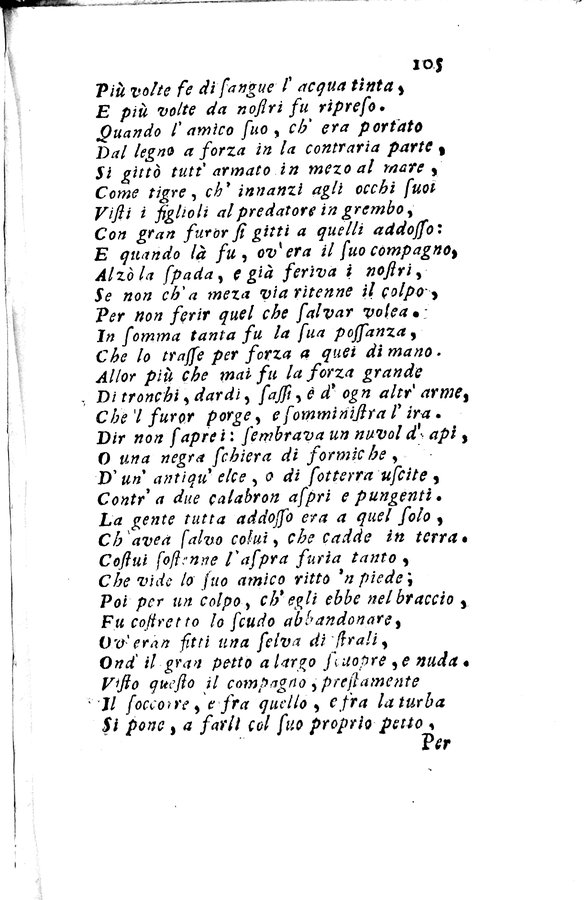 105
Più volte fe di ſangue l' acqua tinta,
E più volte da noſtri fu ripreſo.
Quando l' amico ſuo, ch' era portato
Dal legno a forza in la contraria parte,
Si gittò tutt' armato in mezo al mare,
Come tigre, ch' innanzi agli occhi ſuoi
Viſti i figlioli al predatore in grembo,
Con gran furor ſi gitti a quelli addoſſo:
E quando là fu, ov' era il ſuo compagno,
Alzò la ſpada, e già feriva i noſtri,
Se non ch' a meza via ritenne il colpo,
Per non ferir quel che ſalvar volea.
In ſomma tanta fu la ſua poſſanza,
Che lo traſſe per forza a quei di mano.
Allor più che mai fu la forza grande
Di tronchi, dardi, ſaſſi, e d' ogn altr' arme,
Che 'l furor porge, e ſomminiſtra l' ira.
Dir non ſaprei: ſembrava un nuvol d' api,
O una negra ſchiera di formiche,
D' un' antiqu' elce, o di ſotterra uſcite,
Contr' a due calabron aſpri e pungenti.
La gente tutta addoſſo era a quel ſolo,
Ch' avea ſalvo colui, che cadde in terra.
Coſtui ſoſtenne l' aſpra furia tanto,
Che vide lo ſuo amico ritto 'n piede;
Poi per un colpo, ch' egli ebbe nel braccio,
Fu coſtretto lo ſcudo abbandonare,
Ov' eran fitti una ſelva di ſtrali,
Ond' il gran petto a largo ſcuopre, e nuda.
Viſto queſto il compagno, preſtamente
Il ſoccorre, e fra quello, e fra la turba
Si pone, a farli col ſuo proprio petto,
Per